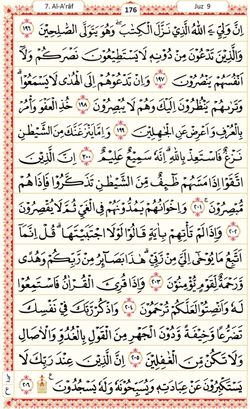 7. Al-A'râf 176 Juz 9
اِنَّ وَلِيِّ ےَ اللّٰهُ الَّذِيْ نَزَّلَ الْكِتٰبَۖ وَهُوَ يَتَوَلَّى الصّٰلِحِيْنَ ١٩٦
وَالَّذِيْنَ تَدْعُوْنَ مِنْ دُوْنِهٖ لَا يَسْتَطِيْعُوْنَ نَصْرَكُمْ وَلَآ
اَنْفُسَهُمْ يَنْصُرُوْنَ ١٩٧ وَاِنْ تَدْعُوْهُمْ اِلَى الْهُدٰى لَا يَسْمَعُوْاۗ
وَتَرٰىهُمْ يَنْظُرُوْنَ اِلَيْكَ وَهُمْ لَا يُبْصِرُوْنَ ١٩٨ خُذِ الْعَفْوَ وَأْمُرْ
بِالْعُرْفِ وَاَعْرِضْ عَنِ الْجٰهِلِيْنَ ١٩٩ وَاِمَّا يَنْزَغَنَّكَ مِنَ الشَّيْطٰنِ
نَزْغٌ فَاسْتَعِذْ بِاللّٰهِۗ اِنَّهٗ سَمِيْعٌ عَلِيْمٌ ٢٠٠ اِنَّ الَّذِيْنَ
اتَّقَوْا اِذَا مَسَّهُمْ طٰۤىِٕفٌ مِّنَ الشَّيْطٰنِ تَذَكَّرُوْا فَاِذَا هُمْ
مُّبْصِرُوْنَۚ ٢٠١ وَاِخْوَانُهُمْ يَمُدُّوْنَهُمْ فِى الْغَيِّ ثُمَّ لَا يُقْصِرُوْنَ
٢٠٢ وَاِذَا لَمْ تَأْتِهِمْ بِاٰيَةٍ قَالُوْا لَوْلَا اجْتَبَيْتَهَاۗ قُلْ اِنَّمَآ
اَتَّبِعُ مَا يُوْحٰٓى اِلَيَّ مِنْ رَّبِّيْۗ هٰذَا بَصَاۤىِٕرُ مِنْ رَّبِّكُمْ وَهُدًى
وَّرَحْمَةٌ لِّقَوْمٍ يُّؤْمِنُوْنَ ٢٠٣ وَاِذَا قُرِئَ الْقُرْاٰنُ فَاسْتَمِعُوْا
لَهٗ وَاَنْصِتُوْا لَعَلَّكُمْ تُرْحَمُوْنَ ٢٠٤ وَاذْكُرْ رَّبَّكَ فِيْ نَفْسِكَ
تَضَرُّعًا وَّخِيْفَةً وَّدُوْنَ الْجَهْرِ مِنَ الْقَوْلِ بِالْغُدُوِّ وَالْاٰصَالِ
وَلَا تَكُنْ مِّنَ الْغٰفِلِيْنَ ٢٠٥ اِنَّ الَّذِيْنَ عِنْدَ رَبِّكَ لَا
يَسْتَكْبِرُوْنَ عَنْ عِبَادَتِهٖ وَيُسَبِّحُوْنَهٗ وَلَهٗ يَسْجُدُوْنَ ۩ ٢٠٦